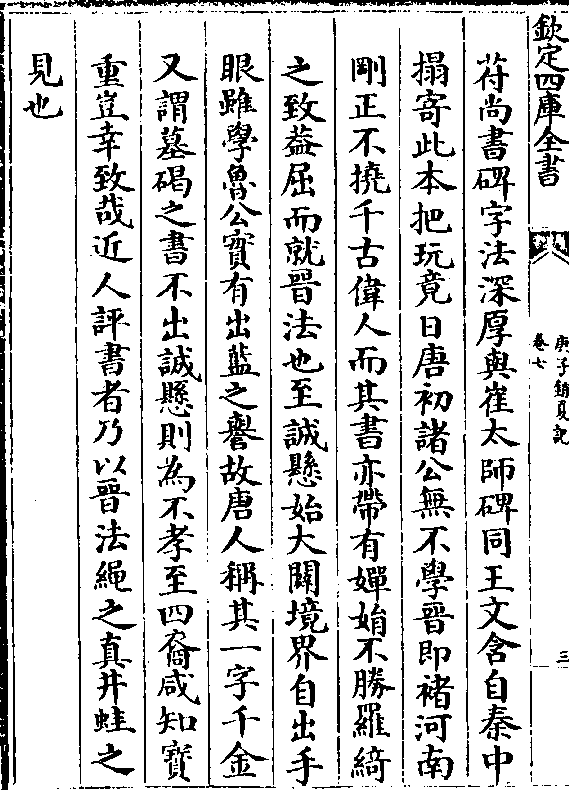 欽定四庫全書
庚子銷夏記
卷七
三
苻尚書碑字法深厚與崔太師碑同王文含自秦中
搨寄此本把玩竟日唐初諸公無不學晉即褚河南
剛正不撓千古偉人而其書亦帶有嬋娟不勝羅綺
之致葢屈而就晉法也至誠懸始大闢境界自出手
眼雖學魯公實有出藍之譽故唐人稱其一字千金
又謂墓碣之書不出誠懸則為不孝至四裔咸知寶
重豈幸致哉近人評書者乃以晉法繩之真井蛙之
見也